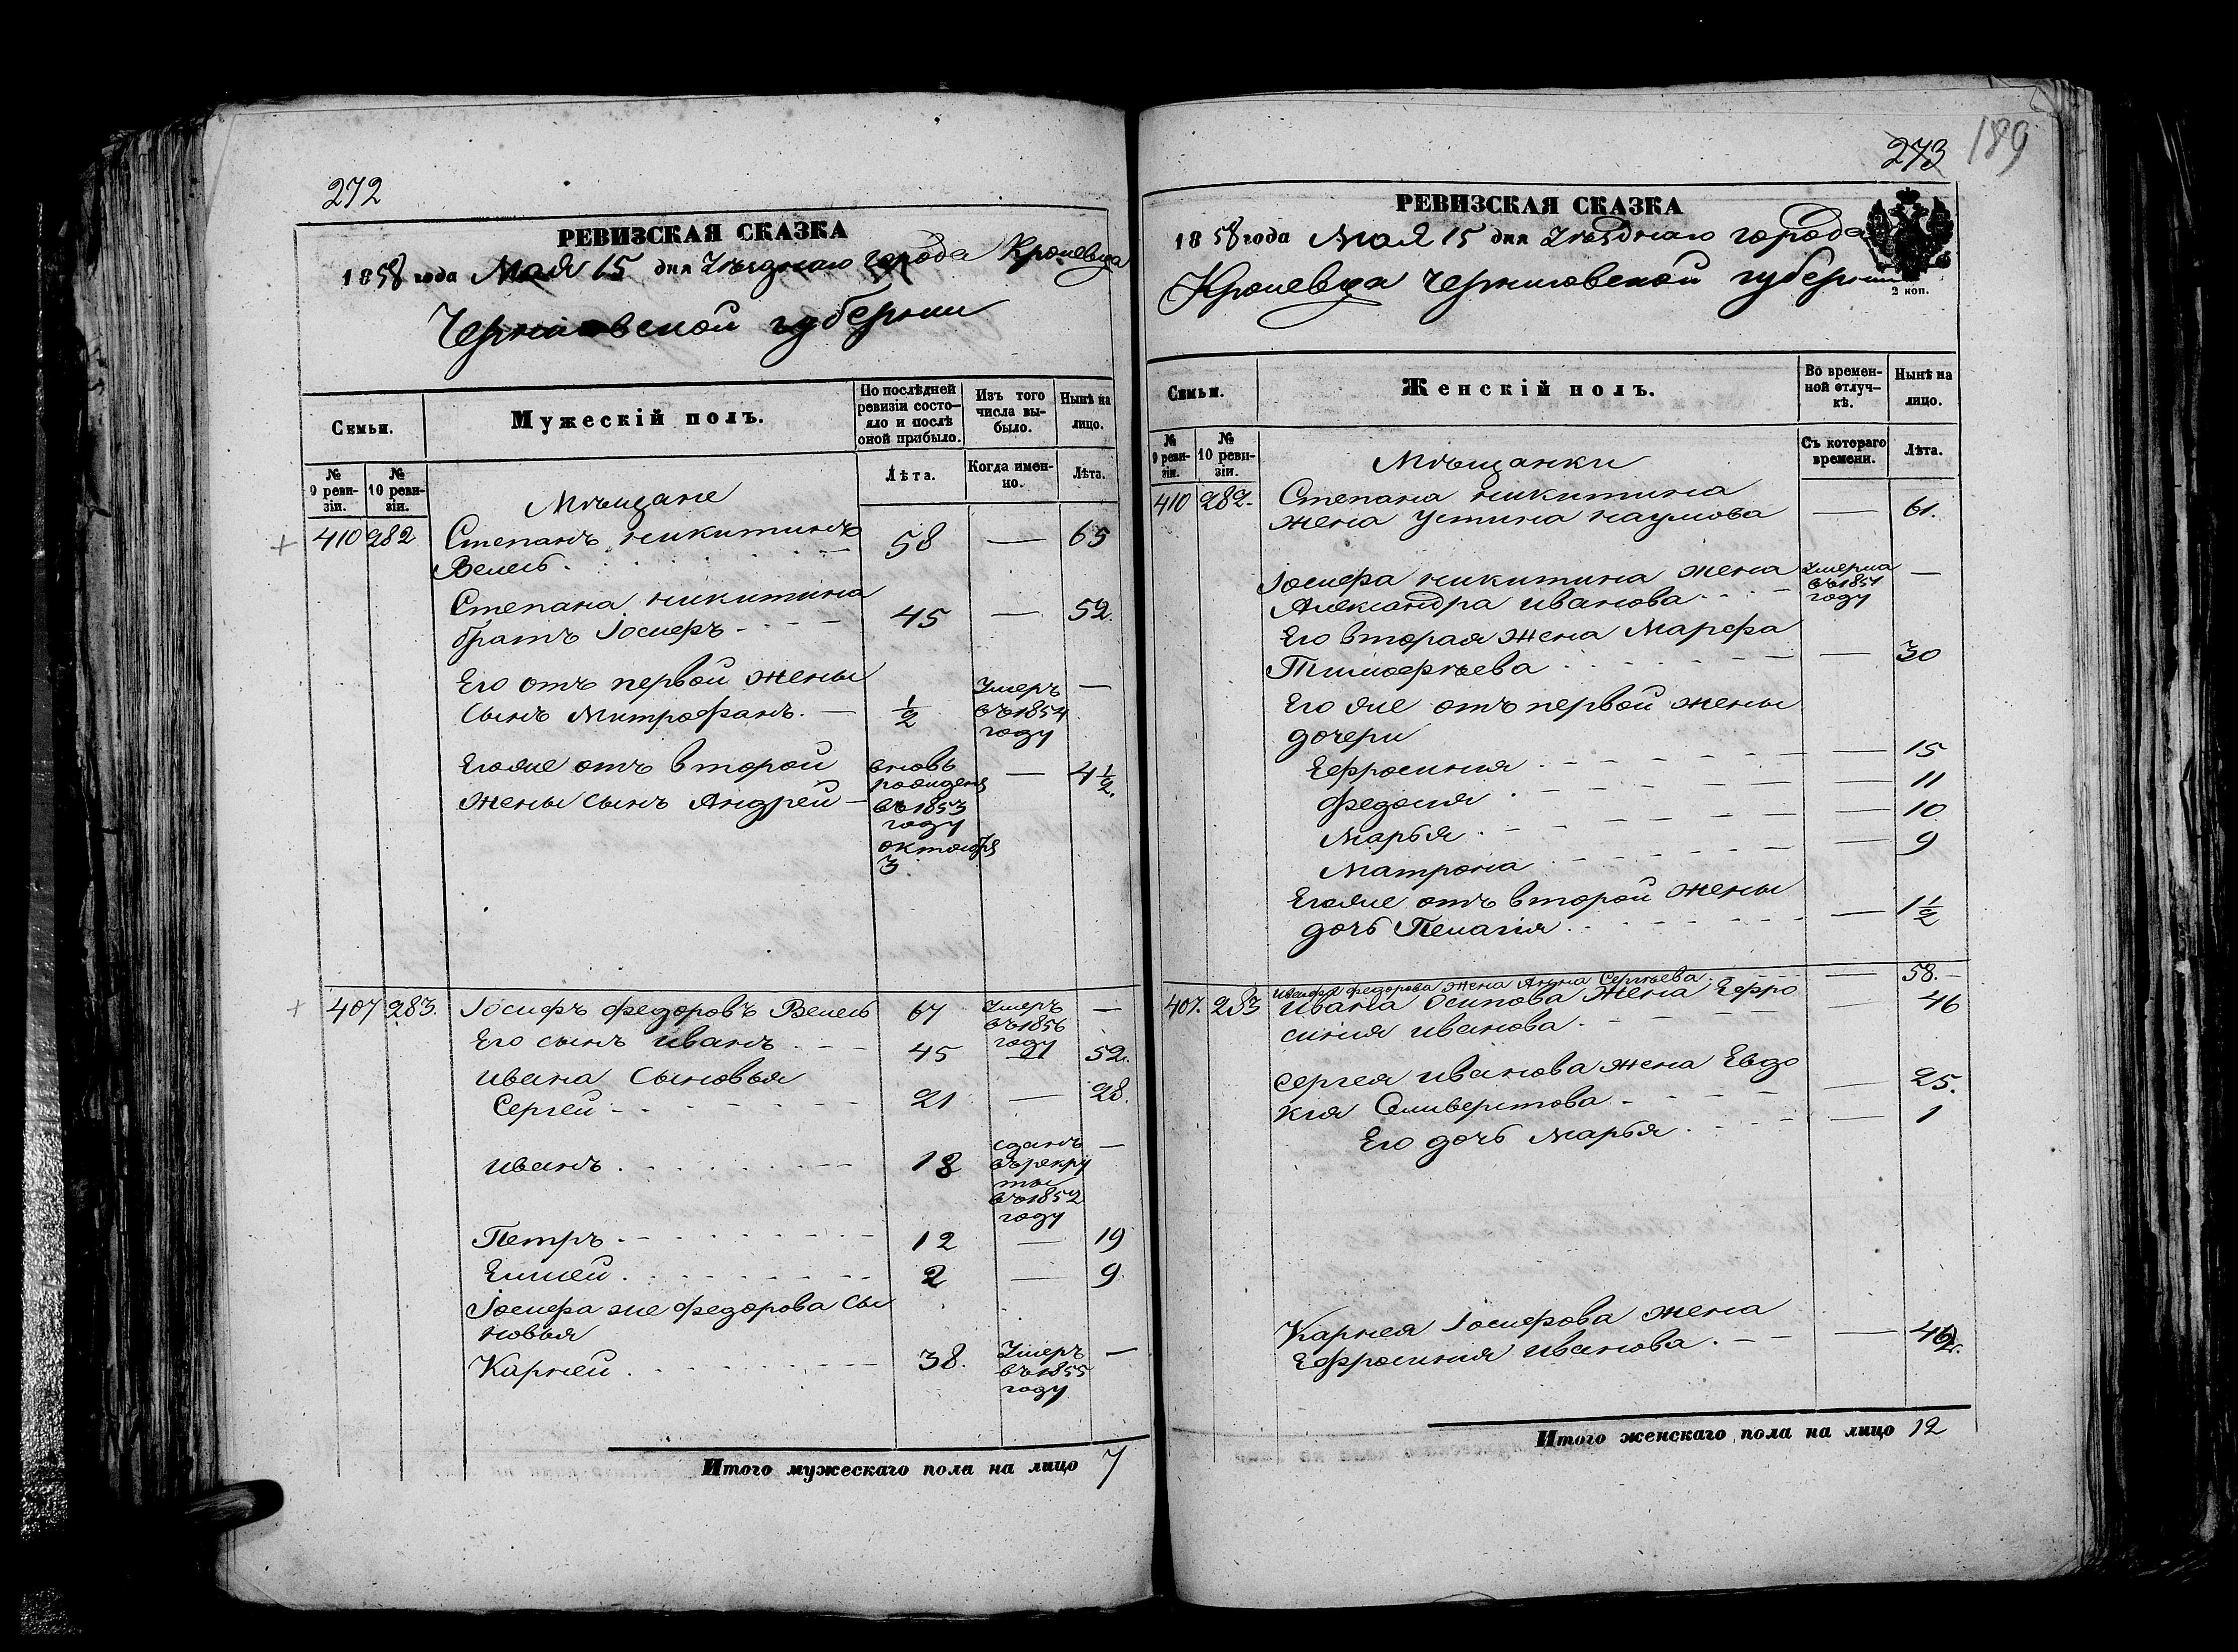 272
РЕВИЗСКАЯ СКАЗКА
1858 года Мая 15 дня Уѣзднаго города Кролевца
Черниговской губернии
Семьи.
Мужескій полъ.
По послѣдней ревизіи состо-
яло и послѣ
оной прибыло.
Изъ того
числа вы-
было.
Нынѣ на
лицо.
№
9 реви-
зіи.
№
10 реви-
зіи.
Лѣта.
Когда имен-
но.
Лѣта.
Мѣщане
410 282 Степанъ Никитинъ
Велегь. 58 — 65
Степана Никитина
братъ Іосифъ 45 — 52.
Его отъ первой жены
сынъ Митрофанъ. ½ Умеръ
въ 1854
году —
Его же отъ второй
жены сынъ Андрей
вновь
рожденъ
въ 1853
году
октября
3. — 4½.
407 283. Іосифъ Федоровъ Велегь 67 Умеръ
въ 1856
году —
Его сынъ Иванъ 45 — 52.
Ивана Сыновья
Сергей 21 — 28.
Иванъ. 18 сданъ
въ рекру
ты
въ 1852
году —
Петръ. 12 — 19
Елисей. 2 — 9.
Іосифа же Федорова сы
новья
Карней. 38. Умеръ
въ 1855
году —
Итого мужескаго пола на лицо 7
273 189
РЕВИЗСКАЯ СКАЗКА
1858 года Мая 15 дня Уѣзднаго города
Кролевца Черниговской губернии
2 коп.
Семьи.
Женскій полъ.
Во времен-
ной отлуч-
кѣ.
Нынѣ на
лицо.
№
9 реви-
зіи.
№
10 реви-
зіи.
Съ котораго
времени.
Лѣта.
Мѣщанки
410 282. Степана Никитина
жена Устина Наумова — 61.
Іосифа Никитина жена
Александра Иванова
Умерла
въ 1851
году —
Его вторая жена Марфа
Тимофѣева — 30
Его же отъ первой жены
дочери
Ефросиния — 15
Федосия — 11
Марья — 10
Матрона — 9
Его же отъ второй жены
дочь Пелагія. — 1½
Иосифа Федорова жена Анна Сергѣева — 58.
407. 283 Ивана Осипова жена Ефро
синия Иванова — 46
Сергея Иванова жена Евдо
кия Селиверстова — 25.
Его дочь Марья — 1
Карнея Іосифова жена
Ефросиния Иванова. —
Итого женскаго пола на лицо 12